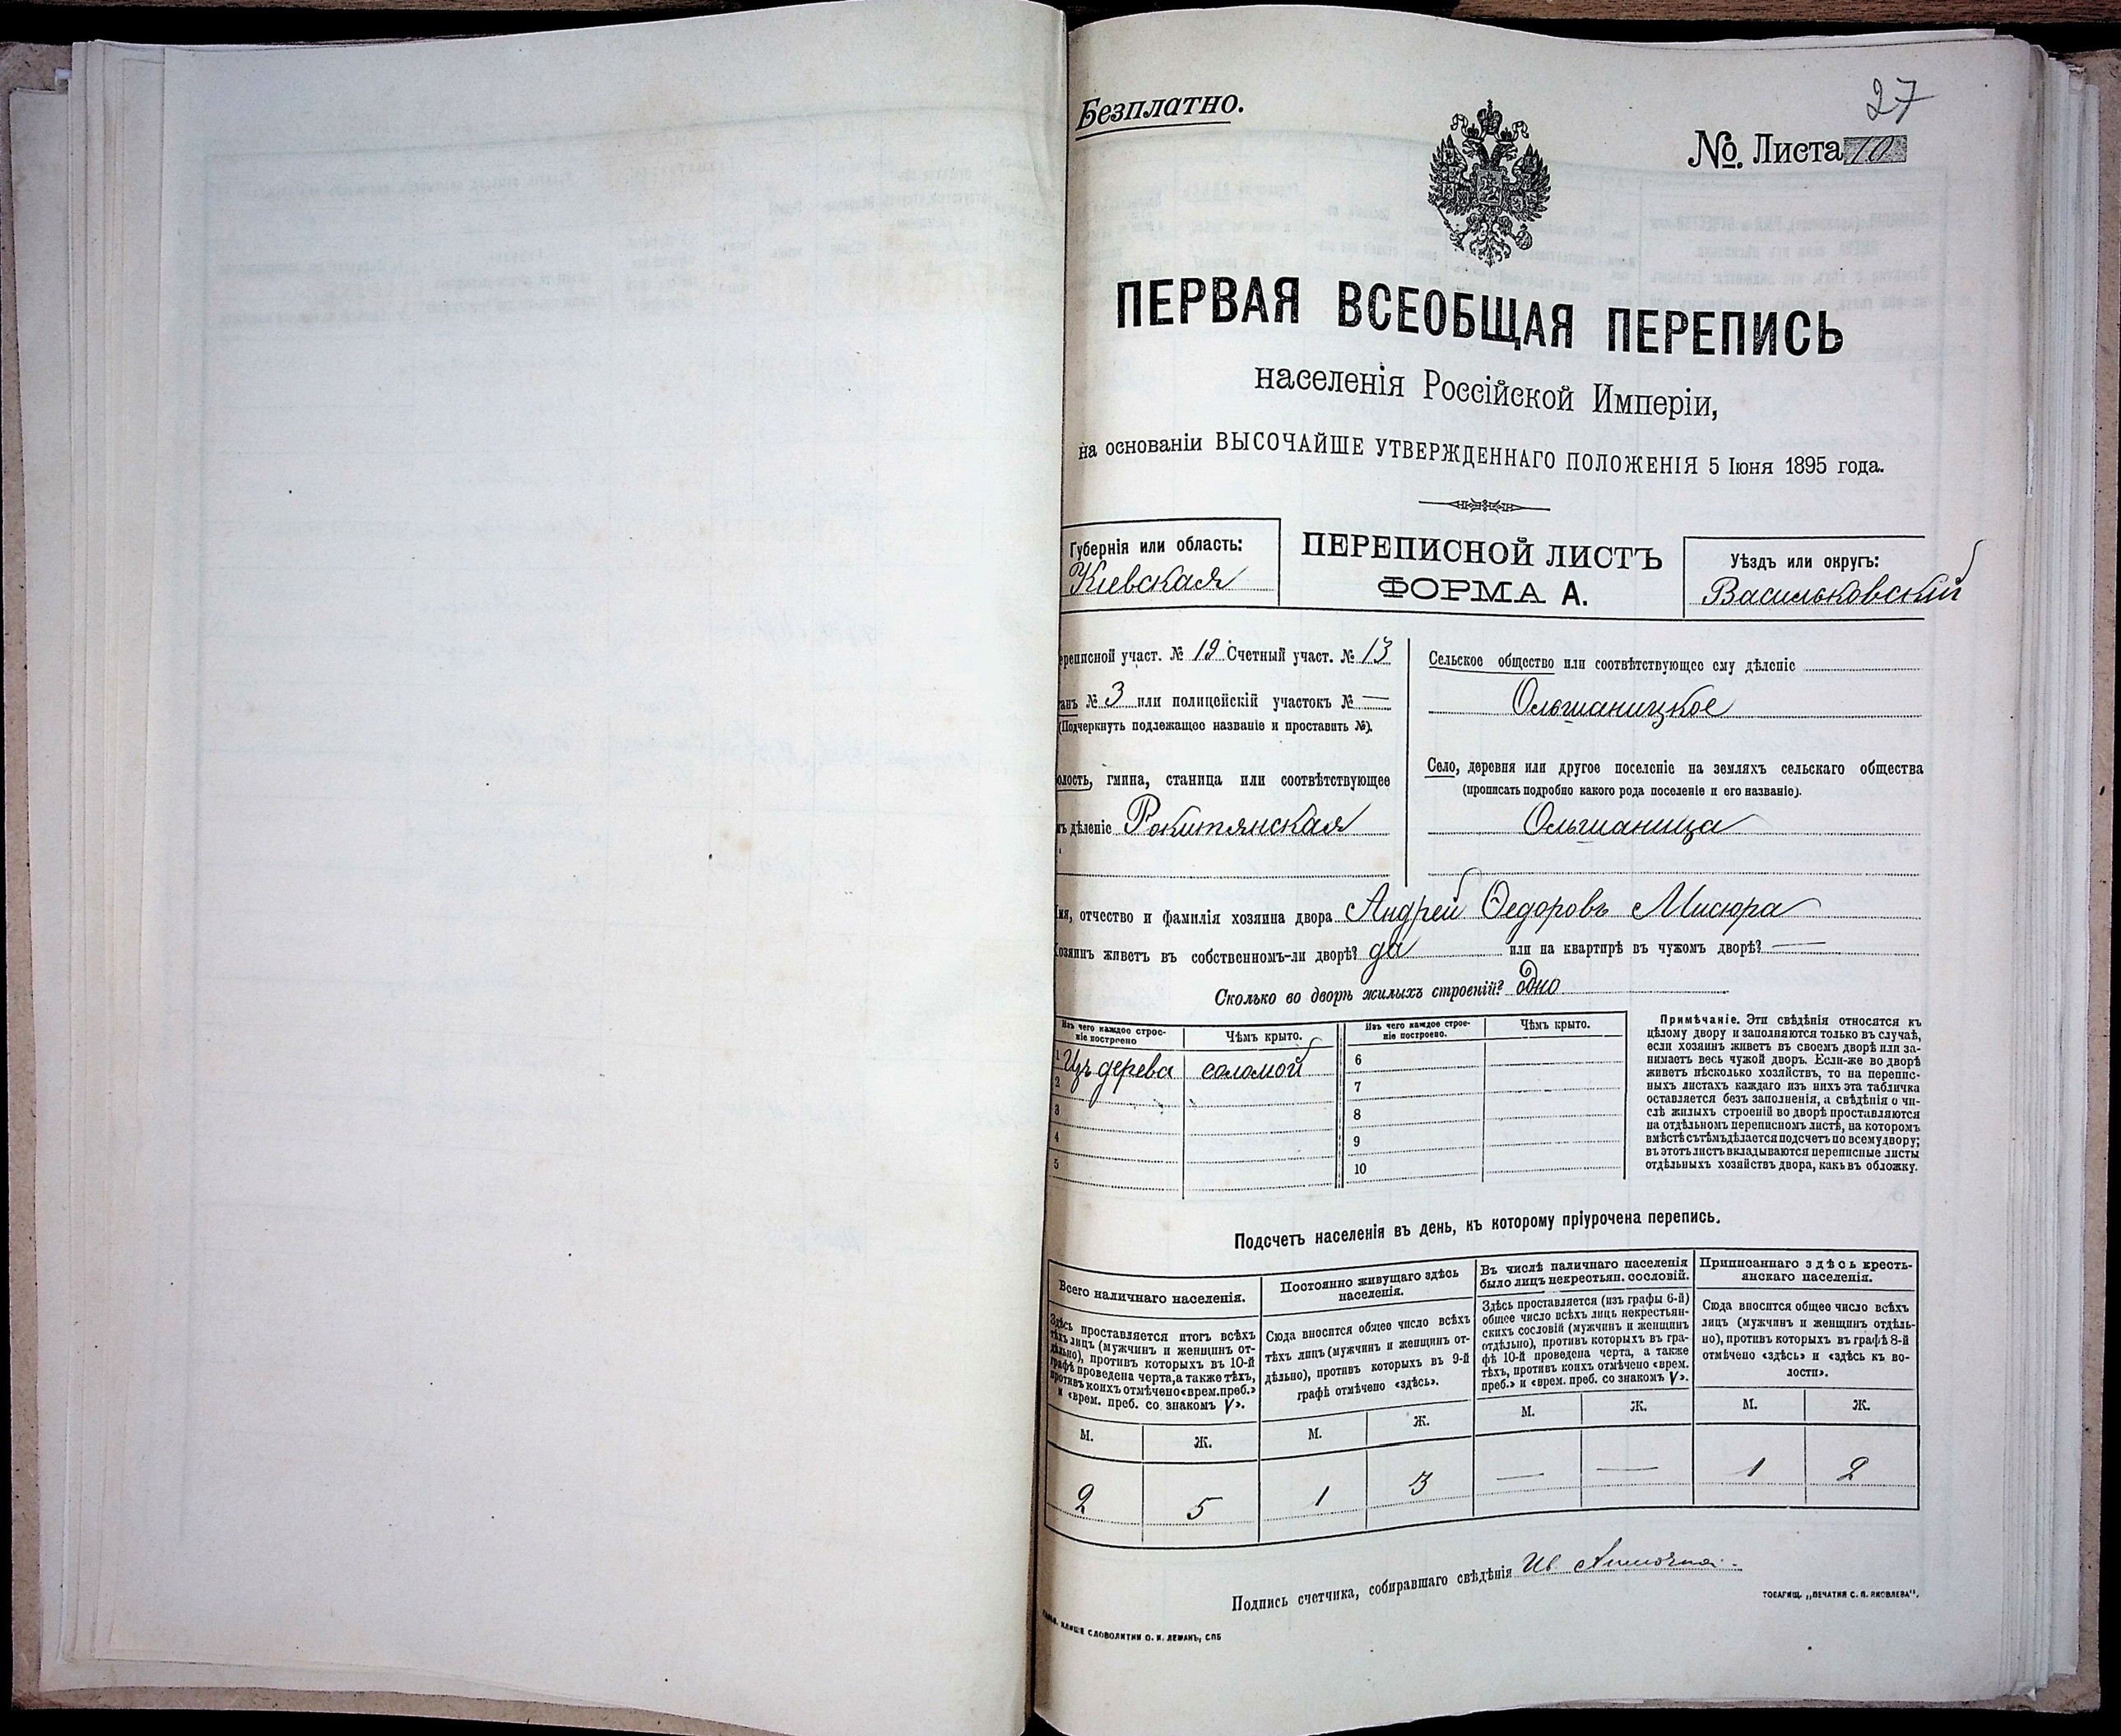 27
Безплатно.
№. Листа 10
ПЕРВАЯ ВСЕОБЩАЯ ПЕРЕПИСЬ
населенія Россійской Имперіи,
на основаніи ВЫСОЧАЙШЕ УТВЕРЖДЕННАГО ПОЛОЖЕНІЯ 5 Іюня 1895 года.
Губернія или область:
Кіевская
ПЕРЕПИСНОЙ ЛИСТЪ
ФОРМА А.
Уѣздъ или округъ:
Васильковскій
ереписной участ. № 19 Счетный участ. № 13
анъ № 3 или полицейскій участокъ № —
(Подчеркнуть подлежащее названіе и проставить №).
олость, гмина, станица или соотвѣтствующее
ъ дѣленіе Рокитянская
Сельское общество или соотвѣтствующее ему дѣленіе
Ольшаницкое
Село, деревня или другое поселеніе на земляхъ сельскаго общества
(прописать подробно какого рода поселеніе и его названіе).
Ольшаница
Имя, отчество и фамилія хозяина двора Андрей Ѳедоровъ Мисюра
Хозяинъ живетъ въ собственномъ-ли дворѣ? да или на квартирѣ въ чужомъ дворѣ? —
Сколько во дворѣ жилыхъ строеній? одно
Изъ чего каждое строе-
ніе построено
Чѣмъ крыто.
1 Изъ дерева соломой
2
3
4
5
Изъ чего каждое строе-
ніе построено.
Чѣмъ крыто.
6
7
8
9
10
Примѣчаніе. Эти свѣдѣнія относятся къ
цѣлому двору и заполняются только въ случаѣ,
если хозяинъ живетъ въ своемъ дворѣ или за-
нимаетъ весь чужой дворъ. Если-же во дворѣ
живетъ нѣсколько хозяйствъ, то на перепис-
ныхъ листахъ каждаго изъ нихъ эта табличка
оставляется безъ заполненія, а свѣдѣнія о чи-
слѣ жилыхъ строеній во дворѣ проставляются
на отдѣльномъ переписномъ листѣ, на которомъ
вмѣстѣ съ тѣмъ дѣлается подсчетъ по всему двору;
въ этотъ листъ вкладываются переписные листы
отдѣльныхъ хозяйствъ двора, какъ въ обложку.
Подсчетъ населенія въ день, къ которому пріурочена перепись.
Всего наличнаго населенія.
Здѣсь проставляется итогъ всѣхъ
тѣхъ лицъ (мужчинъ и женщинъ от-
дѣльно), противъ которыхъ въ 10-й
графѣ проведена черта, а также тѣхъ,
противъ коихъ отмѣчено «врем. преб.»
и «врем. преб. со знакомъ V».
М. Ж.
2 5
Постоянно живущаго здѣсь
населенія.
Сюда вносится общее число всѣхъ
тѣхъ лицъ (мужчинъ и женщинъ от-
дѣльно), противъ которыхъ въ 9-й
графѣ отмѣчено «здѣсь».
М. Ж.
1 3
Въ числѣ наличнаго населенія
было лицъ некрестьян. сословій.
Здѣсь проставляется (изъ графы 6-й)
общее число всѣхъ лицъ некрестьян-
скихъ сословій (мужчинъ и женщинъ
отдѣльно), противъ которыхъ въ гра-
фѣ 10-й проведена черта, а также
тѣхъ, противъ коихъ отмѣчено «врем.
преб.» и «врем. преб. со знакомъ V».
М. Ж.
— —
Приписаннаго здѣсь кресть-
янскаго населенія.
Сюда вносится общее число всѣхъ
лицъ (мужчинъ и женщинъ отдѣль-
но), противъ которыхъ въ графѣ 8-й
отмѣчено «здѣсь» и «здѣсь къ во-
лости».
М. Ж.
1 2
Подпись счетчика, собиравшаго свѣдѣнія Ив.
ТОВАРИЩ. „ПЕЧАТНЯ С. П. ЯКОВЛЕВА".
КЛИШЕ СЛОВОЛИТНИ О. И. ЛЕМАНЪ, СПБ